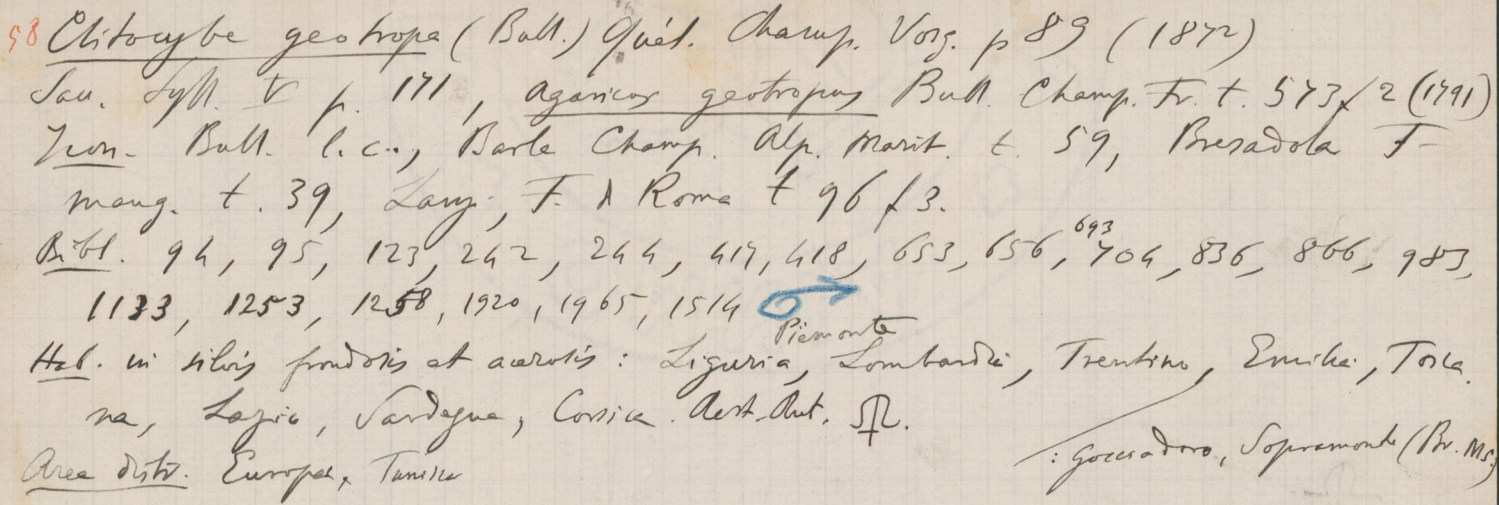 58 Clitocybe geotropa (Bull.) Quél. Champ. Vosg. p 89 (1872)
Sacc. Syll. V p. 171, Agaricus geotropus Bull. Champ. Fr. t. 573 f 2 (1791)
Icon. Bull. l.c., Barla Champ. Alp. Marit. t. 59, Bresadola F.
mang. t. 39, F. d Roma t 96 f 3.
Bibl. 94, 95, 123, 242, 244, 417, 418, 653, 656, 693 704, 836, 866, 983,
1133, 1253, 1258, 1920, 1965, 1514
Piemonte
Hab. in silvis frondosis et acerosis : Liguria, Lombardia, Trentino, Emilia, Tosca
na, Lazio, Sardegna, Corsica. Aest. Aut.
: Gocciadoro, Sopramonte (Br. Ms.)
Area distr. Europa, Tunisia